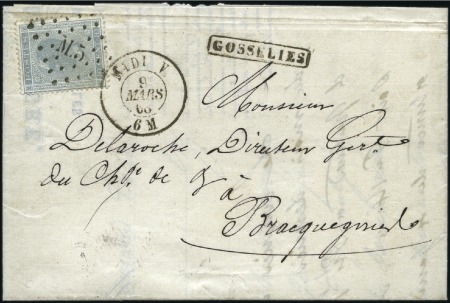 M.5.
MIDI V.
9
MARS
6 M
GOSSELIES
Monsieur
Delaroche, Directeur Gért.
du Chge. de
à
Bracquegnies